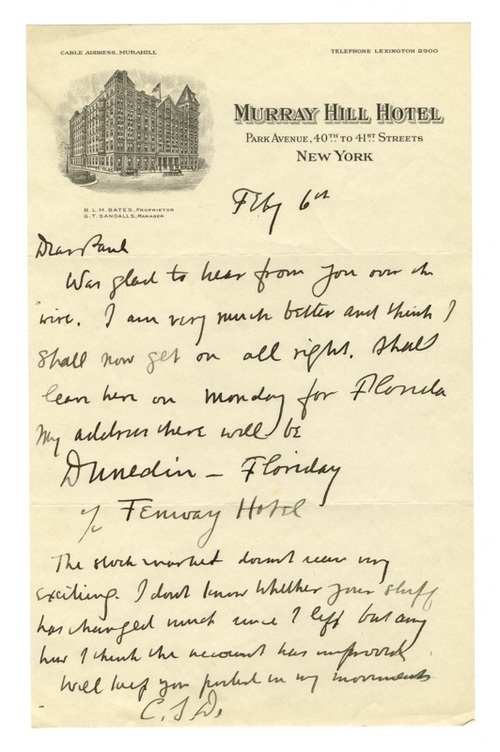 CABLE ADDRESS, MURAHILL
TELEPHONE LEXINGTON 2900
MURRAY HILL HOTEL
PARK AVENUE, 40TH TO 41ST STREETS
NEW YORK
B. L. M. BATES, PROPRIETOR
G. T. SANDALLS, MANAGER
Feby 6th
Dear Paul
Was glad to hear from you over the
wire. I am very much better and think I
shall now get on all right. Shall
leave here on Monday for Florida
My address there will be
Dunedin – Floriday
c/o Fenway Hotel
The stock market doesn't seem very
exciting. I don't know whether your stuff
has changed much since I left but any
how I think the account has improved.
Will keep you posted in my movements
C.